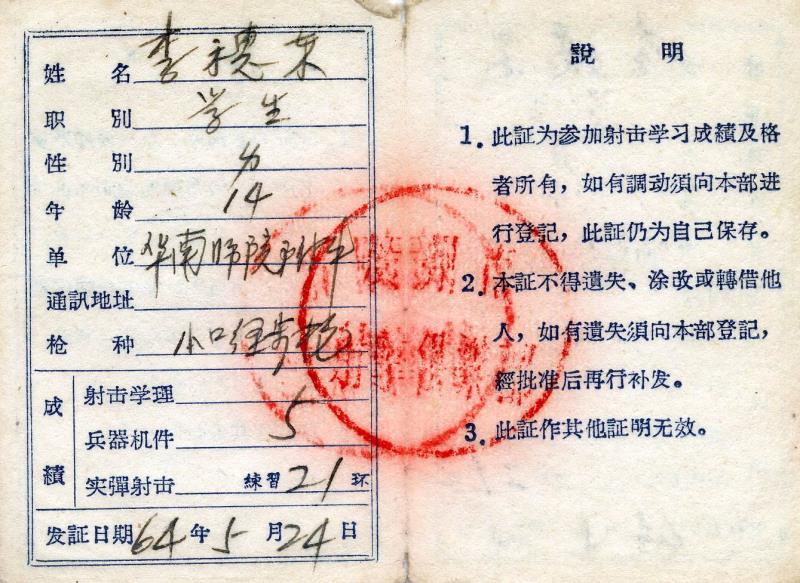 姓 名 李穗东
职 別 学生
性 別 男
年 龄 14
单 位 华南师院附中
通訊地址
枪 种 小口径步枪
成績
射击学理
兵器机件 5
实彈射击 練習21环
发証日期64年5月24日
說 明
1. 此証为参加射击学习成績及格
者所有，如有調动須向本部进
行登記，此証仍为自己保存。
2. 本証不得遺失、涂改或轉借他
人，如有遺失須向本部登記，
經批准后再行补发。
3. 此証作其他証明无效。